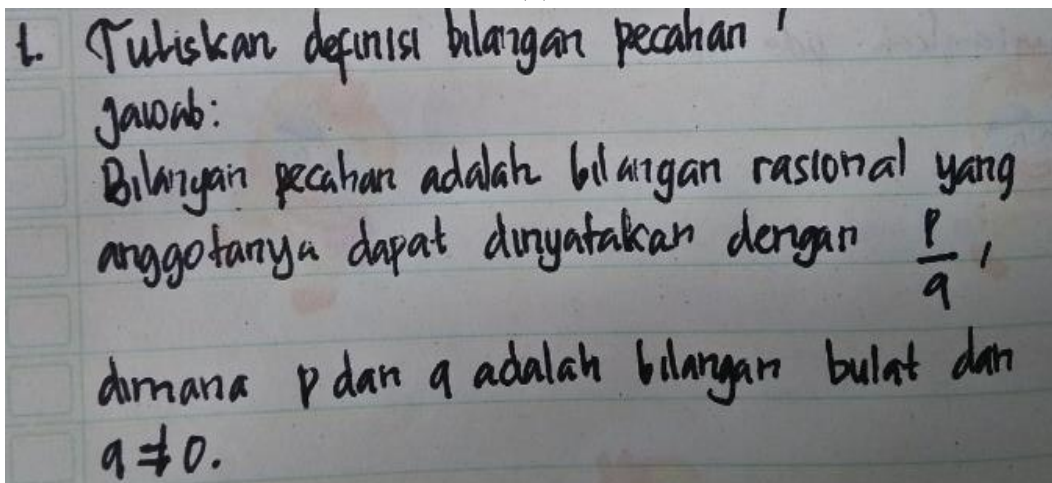 1. Tuliskan definisi bilangan pecahan !
Jawab:
Bilangan pecahan adalah bilangan rasional yang
anggotanya dapat dinyatakan dengan p/q,
dimana p dan q adalah bilangan bulat dan
q ≠ 0.